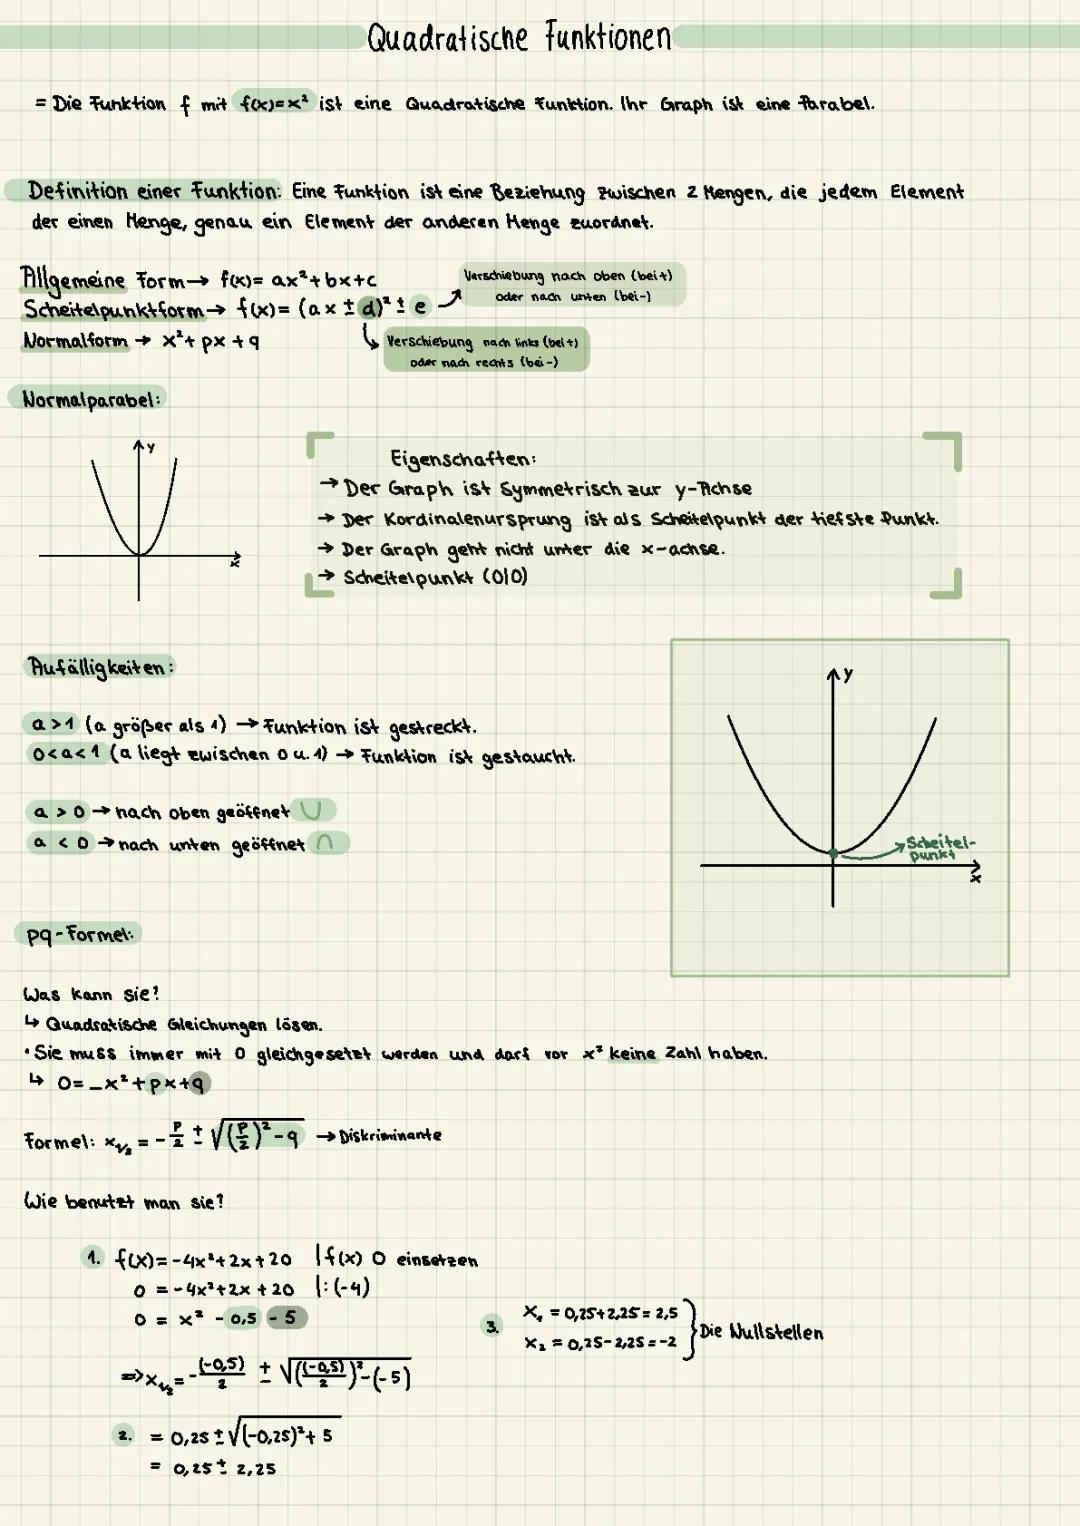 Quadratische Funktionen
= Die Funktion f mit f(x)=x² ist eine Quadratische Funktion. Ihr Graph ist eine Parabel.
Definition einer Funktion: Eine Funktion ist eine Beziehung zwischen 2 Mengen, die jedem Element
der einen Menge, genau ein Element der anderen Menge zuordnet.
Allgemeine Form → f(x)= ax²+bx+c
Verschiebung nach oben (bei +)
oder nach unten (bei -)
Scheitelpunktform → f(x)= (ax ± d)² ± e
Normalform → x²+px+q
Verschiebung nach links (bei +)
oder nach rechts (bei -)
Normalparabel:
y
x
Eigenschaften:
→ Der Graph ist Symmetrisch zur y-Achse
→ Der Kordinalenursprung ist als Scheitelpunkt der tiefste Punkt.
→ Der Graph geht nicht unter die x-achse.
→ Scheitelpunkt (0|0)
Aufälligkeiten:
a>1 (a größer als 1) → Funktion ist gestreckt.
0<a<1 (a liegt zwischen 0 u. 1) → Funktion ist gestaucht.
a > 0 → nach oben geöffnet ∪
a < 0 → nach unten geöffnet ∩
y
Scheitel-
punkt
x
pq-Formel:
Was kann sie?
↳ Quadratische Gleichungen lösen.
• Sie muss immer mit 0 gleichgesetzt werden und darf vor x² keine Zahl haben.
↳ 0= _x²+px+q
Formel: x₁/₂ = -p/2 ± √((p/2)²-q) → Diskriminante
Wie benutzt man sie?
1. f(x)= -4x²+2x+20 | f(x) 0 einsetzen
0 = -4x²+2x+20 |:(-4)
0 = x² - 0,5 - 5
⇒ x₁/₂ = -(-0,5)/2 ± √(((-0,5)/2)²-(-5))
2. = 0,25 ± √((-0,25)²+5)
= 0,25 ± 2,25
3. x₁ = 0,25+2,25 = 2,5
x₂ = 0,25-2,25 = -2
Die Nullstellen